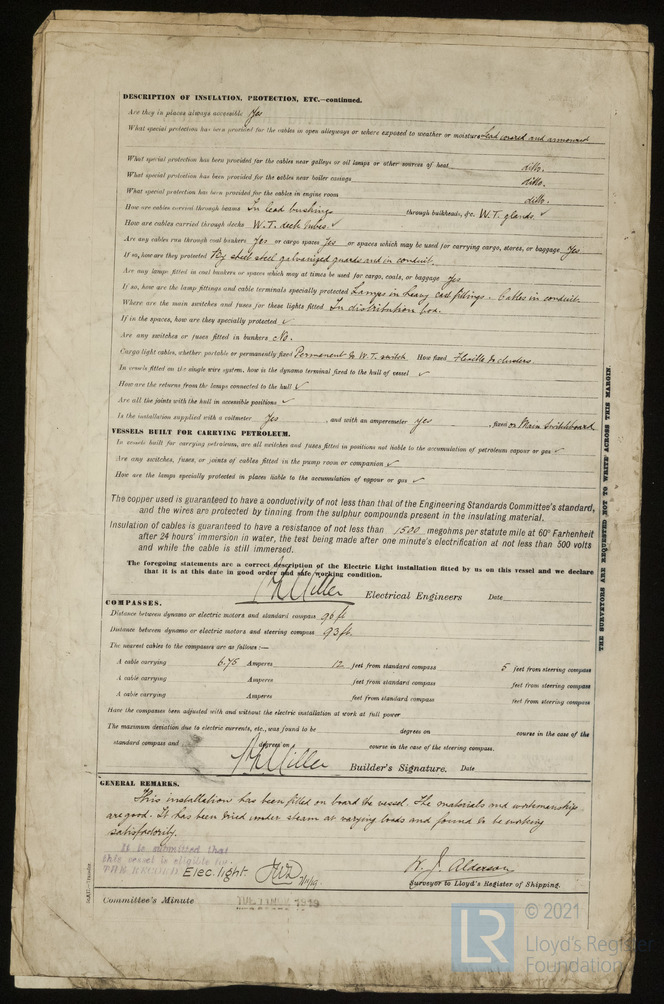 DESCRIPTION OF INSULATION, PROTECTION, ETC.—continued.
Are they in places always accessible Yes
What special protection has been provided for the cables in open alleyways or where exposed to weather or moisture Lead covered and armoured
What special protection has been provided for the cables near galleys or oil lamps or other sources of heat ditto.
What special protection has been provided for the cables near boiler casings ditto.
What special protection has been provided for the cables in engine room ditto.
How are cables carried through beams In lead bushings through bulkheads, &c. W.T. glands. ✓
How are cables carried through decks W.T. deck tubes ✓
Are any cables run through coal bunkers Yes or cargo spaces Yes or spaces which may be used for carrying cargo, stores, or baggage Yes
If so, how are they protected By sheet steel galvanized guards and in conduit.
Are any lamps fitted in coal bunkers or spaces which may at times be used for cargo, coals, or baggage Yes
If so, how are the lamp fittings and cable terminals specially protected Lamps in heavy cast fittings. Cables in conduit.
Where are the main switches and fuses for these lights fitted In distribution box.
If in the spaces, how are they specially protected ✓
Are any switches or fuses fitted in bunkers No.
Cargo light cables, whether portable or permanently fixed Permanent to W.T. switch How fixed Flexible to clusters.
In vessels fitted on the single wire system, how is the dynamo terminal fixed to the hull of vessel ✓
How are the returns from the lamps connected to the hull ✓
Are all the joints with the hull in accessible positions ✓
Is the installation supplied with a voltmeter Yes , and with an amperemeter yes , fixed on Main Switchboard
VESSELS BUILT FOR CARRYING PETROLEUM.
In vessels built for carrying petroleum, are all switches and fuses fitted in positions not liable to the accumulation of petroleum vapour or gas ✓
Are any switches, fuses, or joints of cables fitted in the pump room or companion ✓
How are the lamps specially protected in places liable to the accumulation of vapour or gas ✓
The copper used is guaranteed to have a conductivity of not less than that of the Engineering Standards Committee's standard,
and the wires are protected by tinning from the sulphur compounds present in the insulating material.
Insulation of cables is guaranteed to have a resistance of not less than 1500 megohms per statute mile at 60° Farhenheit
after 24 hours' immersion in water, the test being made after one minute's electrification at not less than 500 volts
and while the cable is still immersed.
The foregoing statements are a correct description of the Electric Light installation fitted by us on this vessel and we declare
that it is at this date in good order and safe working condition.
Miller Electrical Engineers Date
COMPASSES.
Distance between dynamo or electric motors and standard compass 96 ft
Distance between dynamo or electric motors and steering compass 93 ft.
The nearest cables to the compasses are as follows:—
A cable carrying 6.75 Amperes 12 feet from standard compass 5 feet from steering compass
A cable carrying Amperes feet from standard compass feet from steering compass
A cable carrying Amperes feet from standard compass feet from steering compass
Have the compasses been adjusted with and without the electric installation at work at full power
The maximum deviation due to electric currents, etc., was found to be degrees on course in the case of the
standard compass and degrees on course in the case of the steering compass.
Miller Builder's Signature. Date
GENERAL REMARKS.
This installation has been fitted on board the vessel. The materials and workmanship
are good. It has been tried under steam at varying loads and found to be working
satisfactorily.
It is submitted that
this vessel is eligible for
THE RECORD Elec. light.
W. J. Alderson
Surveyor to Lloyd's Register of Shipping.
Committee's Minute 1919
THE SURVEYORS ARE REQUESTED NOT TO WRITE ACROSS THIS MARGIN.
LR
© 2021
Lloyd's Register
Foundation